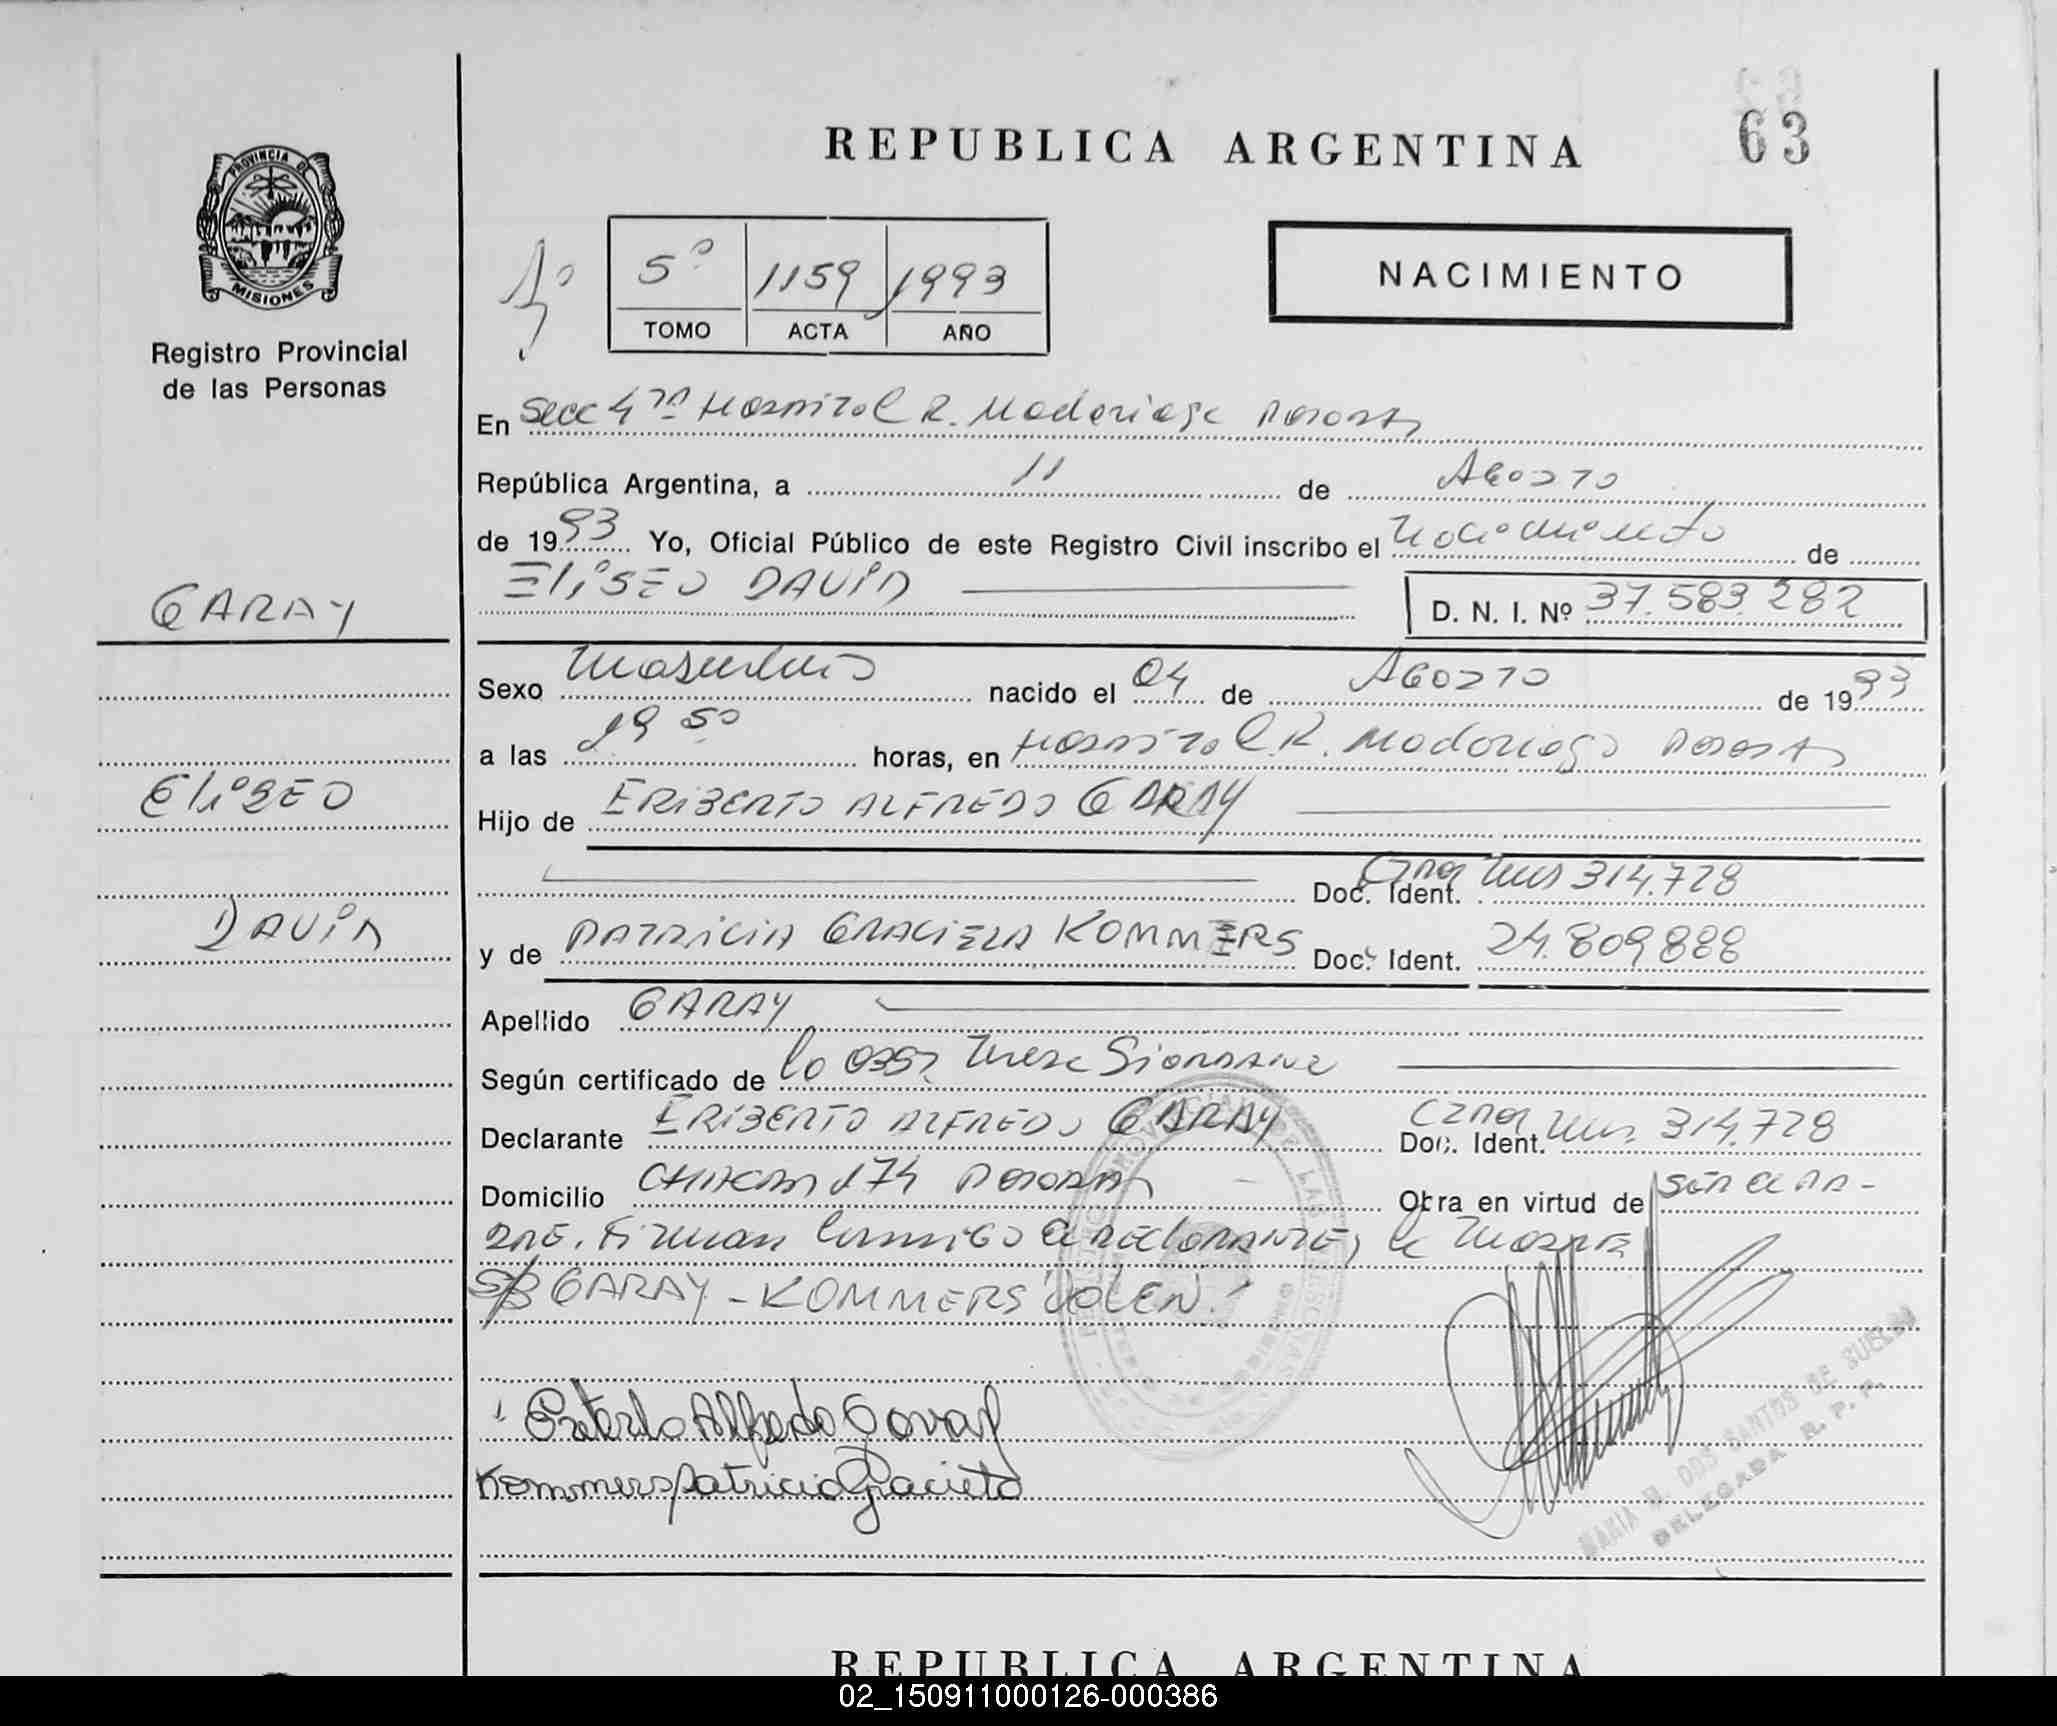 REPUBLICA ARGENTINA
63
PROVINCIA DE
MISIONES
Registro Provincial
de las Personas
1º
5º 1159 1993
TOMO ACTA AÑO
NACIMIENTO
En Secc 4ta Hospital R. Madariaga Posadas
República Argentina, a 11 de Agosto
de 1993 Yo, Oficial Público de este Registro Civil inscribo el nacimiento de
ELISEO DAVID
D. N. I. Nº 37.583.282
GARAY
Sexo Masculino nacido el 04 de Agosto de 1993
a las 19 50 horas, en Hospital R. Madariaga Posadas
ELISEO
Hijo de ERIBERTO ALFREDO GARAY
Doc. Ident. Mnes 314.728
DAVID
y de PATRICIA GRACIELA KOMMERS Doc. Ident. 24.809.888
Apellido GARAY
Según certificado de la Obst.
Declarante ERIBERTO ALFREDO GARAY Doc. Ident. Mnes. 314.728
Domicilio 174 Posadas Obra en virtud de ser el pa-
dre. Firman conmigo el declarante, la madre
S/B GARAY - KOMMERS "VALEN"
Eriberto Alfredo Garay
Kommers Patricia Graciela
MARIA DOS SANTOS DE
DELEGADA R. P. P.
REPUBLICA ARGENTINA
02_150911000126-000386